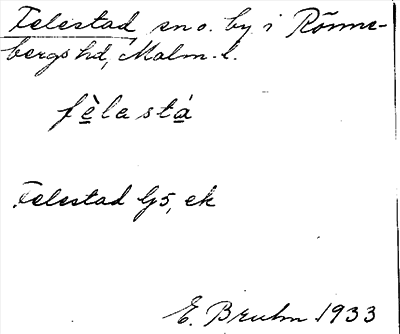 Felestad, sn o. by i Rönne-
bergs hd, Malm. l.
fèlastá
Felestad G5, ek
E. Bruhn 1933